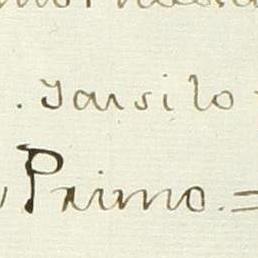 . Tarsilo
Primo. =